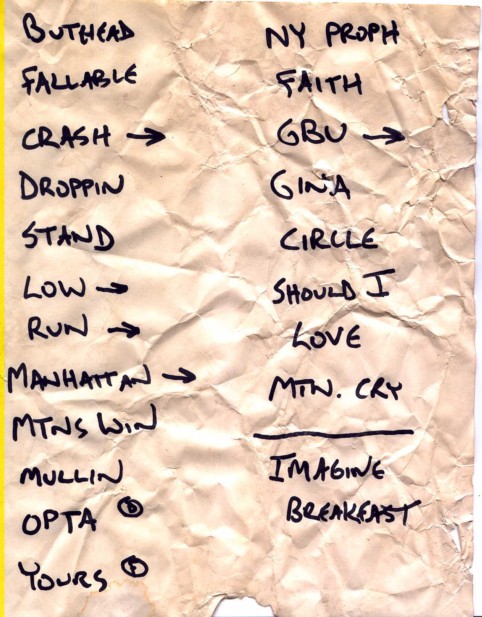 BUTHEAD
FALLABLE
CRASH →
DROPPIN
STAND
LOW →
RUN →
MANHATTAN →
MTNS WIN
MULLIN
OPTA Ⓓ
YOURS Ⓔ
NY PROPH
FAITH
GBU →
GINA
CIRCLE
SHOULD I
LOVE
MTN. CRY
IMAGINE
BREAKFAST